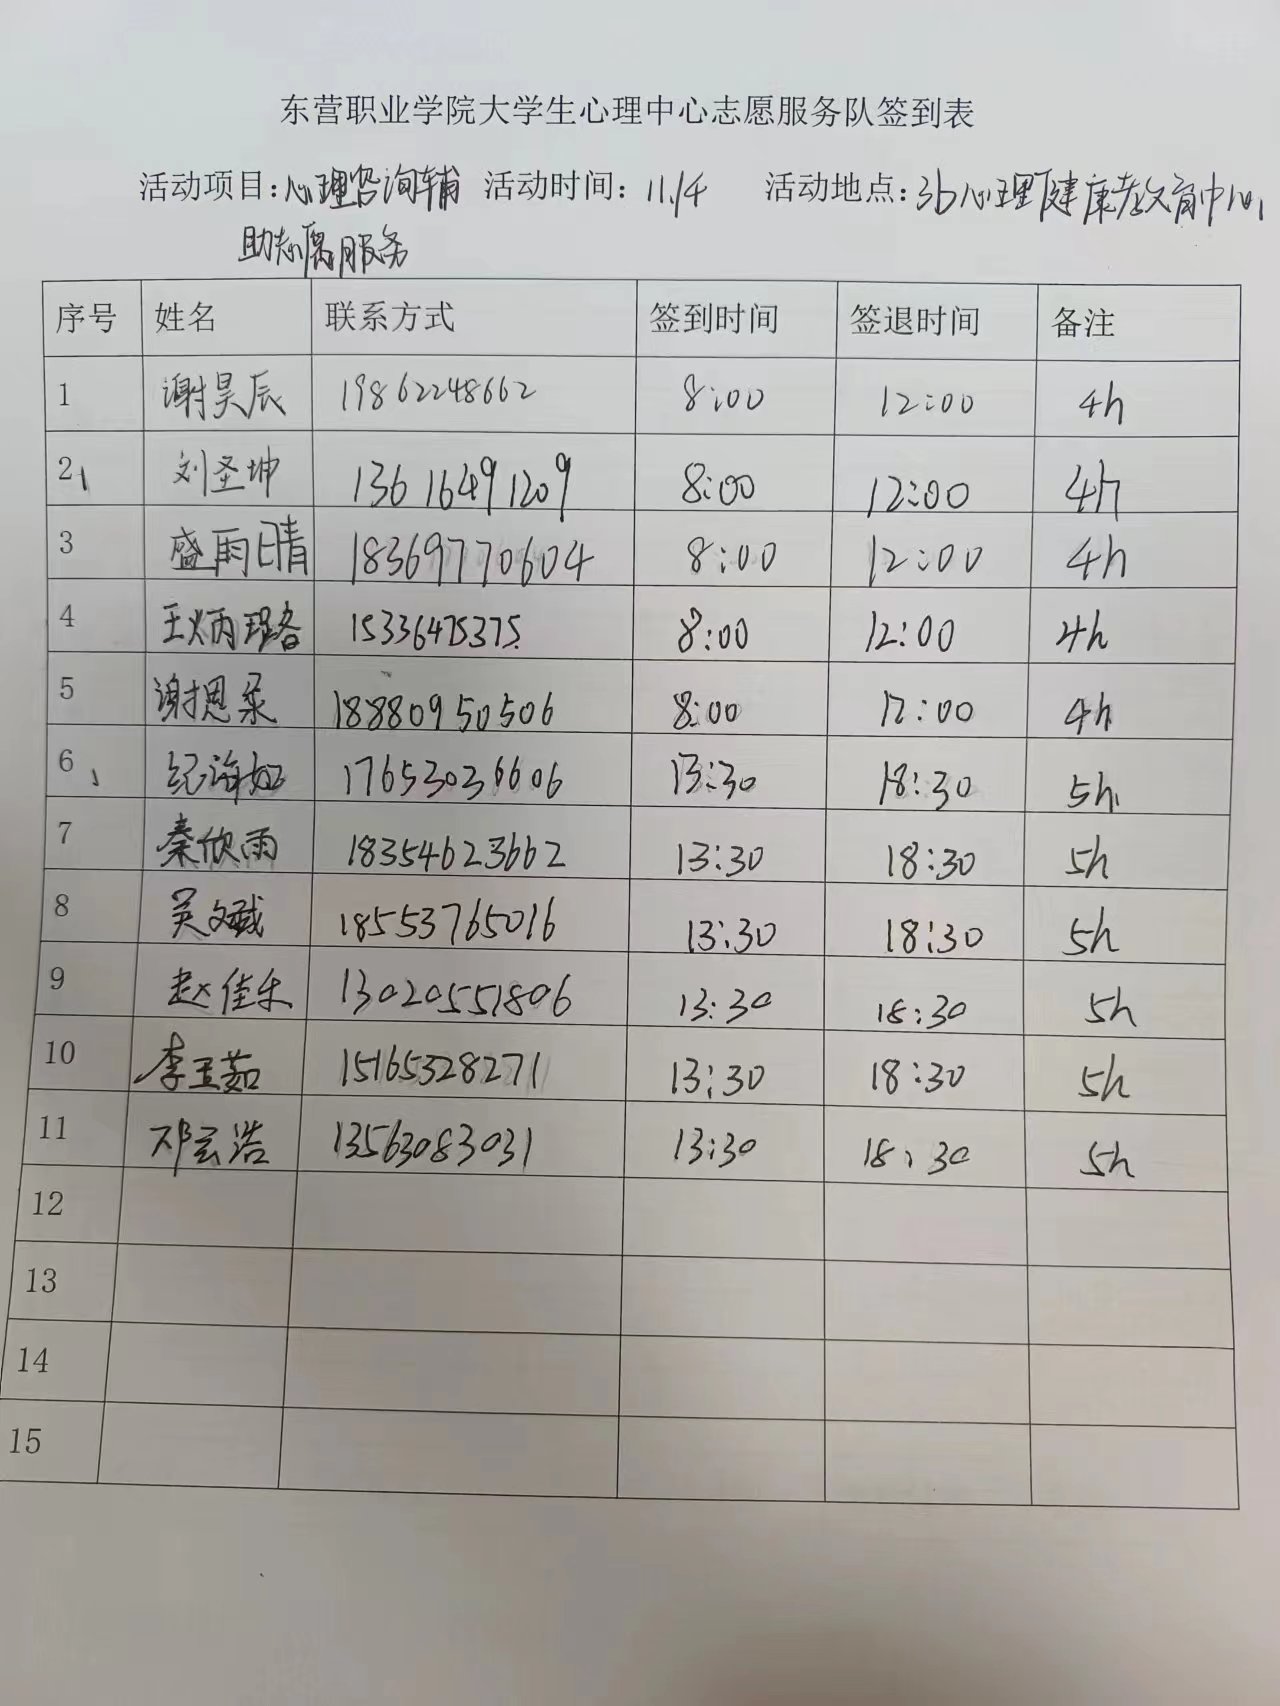 东营职业学院大学生心理中心志愿服务队签到表
活动项目:心理咨询辅 活动时间:11.14 活动地点:3b心理健康教育中心
助志愿服务
序号 姓名 联系方式 签到时间 签退时间 备注
1 谢昊辰 19862248662 8:00 12:00 4h
2 刘圣坤 13616491209 8:00 12:00 4h
3 盛雨晴 18369770604 8:00 12:00 4h
4 王炳珺 15336475375 8:00 12:00 4h
5 谢思柔 18880950506 8:00 12:00 4h
6 纪海如 17653036606 13:30 18:30 5h
7 秦欣雨 18354623662 13:30 18:30 5h
8 吴文斌 18553765016 13:30 18:30 5h
9 赵佳乐 13020551806 13:30 18:30 5h
10 李玉茹 15165328271 13:30 18:30 5h
11 邓云浩 13563083031 13:30 18:30 5h
12
13
14
15